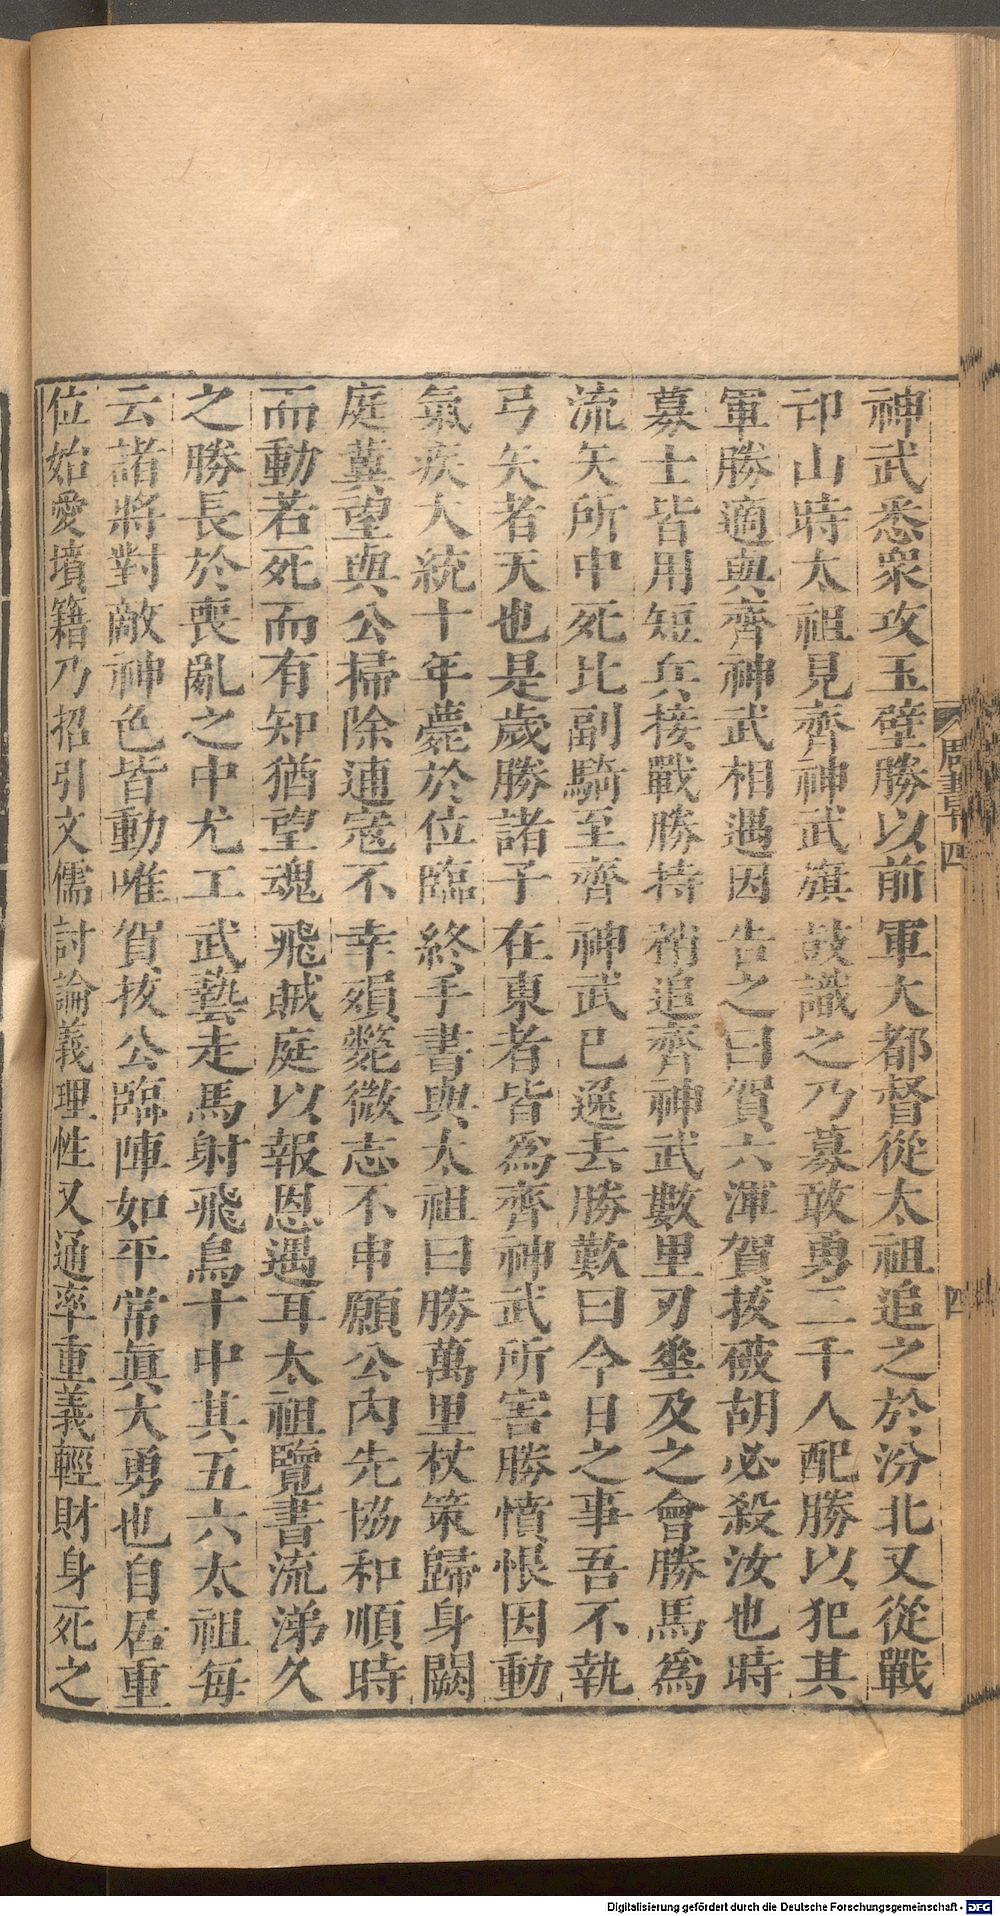 神武悉衆攻玉壁勝以前軍大都督從太祖追之於汾北又從戰
卭山時太祖見齊神武旗鼓識之乃募敢勇三千人配勝以犯其
軍勝適與齊神武相遇因告之曰賀六渾賀拔破胡必殺汝也時
募士皆用短兵接戰勝持矟追齊神武數里刃垂及之會勝馬爲
流矢所中死比副騎至齊神武已逸去勝歎曰今日之事吾不執
弓矢者天也是歲勝諸子在東者皆爲齊神武所害勝憤恨因動
氣疾大統十年薨於位臨終手書與太祖曰勝萬里杖策歸身闕
庭冀望與公掃除逋寇不幸殞斃微志不申願公內先協和順時
而動若死而有知猶望魂飛賊庭以報恩遇耳太祖覽書流涕久
之勝長於喪亂之中尤工武藝走馬射飛鳥十中其五六太祖每
云諸將對敵神色皆動唯賀拔公臨陣如平常眞大勇也自居重
位始愛墳籍乃招引文儒討論義理性又通率重義輕財身死之
周書 四
四
Digitalisierung gefördert durch die Deutsche Forschungsgemeinschaft - DFG